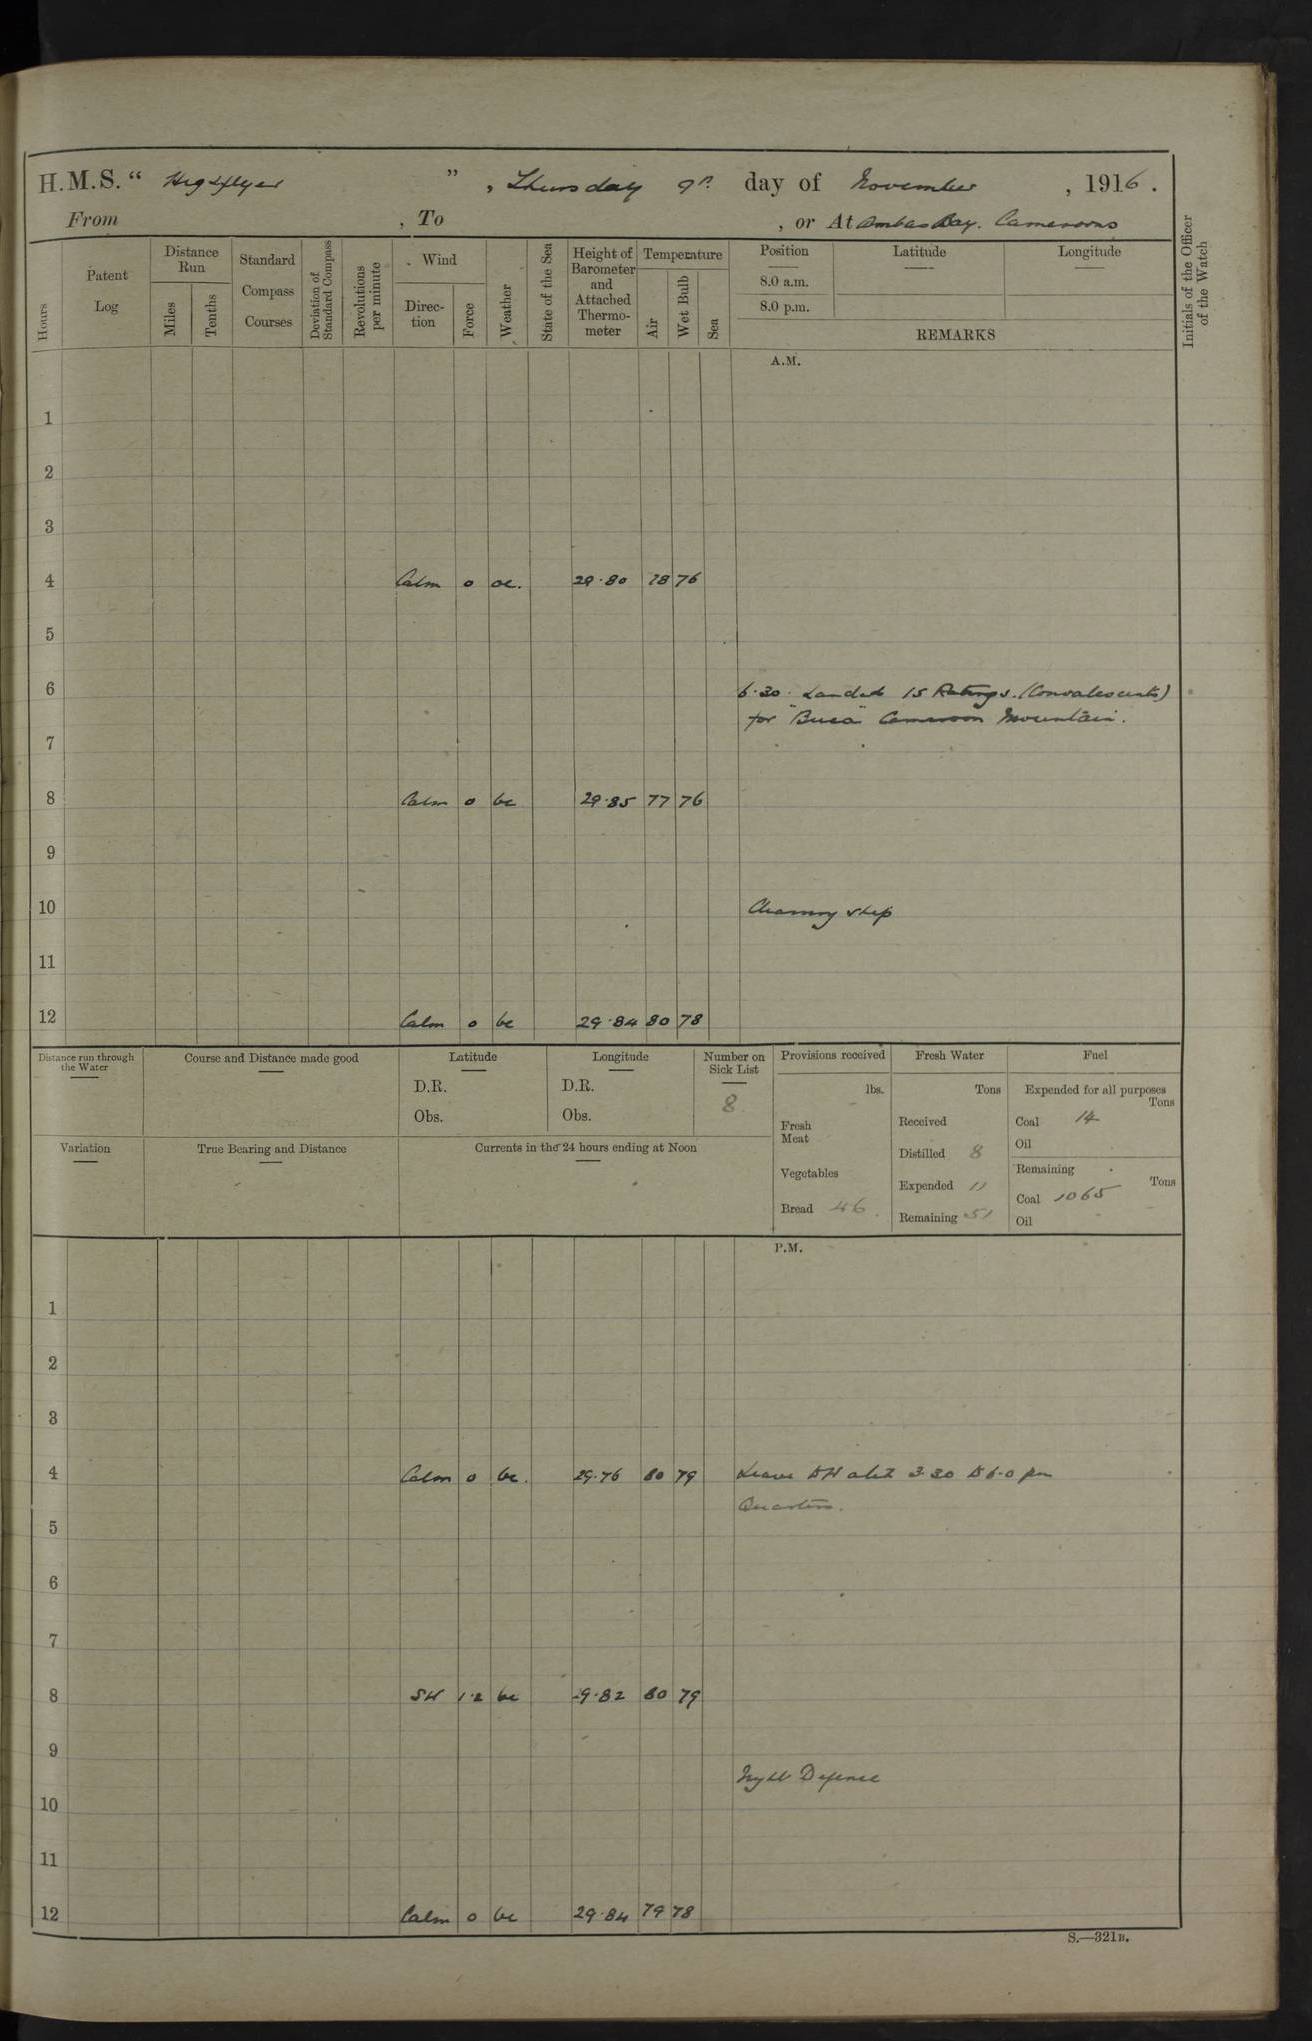 H.M.S. “ Highflyer ” , Thursday 9th day of November , 1916 .
From , To , or At Ambas Bay. Cameroons
Hours
Patent Log
Distance Run
Miles
Tenths
Standard Compass Courses
Deviation of Standard Compass
Revolutions per minute
Wind
Direc-tion
Force
Weather
State of the Sea
Height of Barometer and Attached Thermo-meter
Temperature
Air
Wet Bulb
Sea
Position
8.0 a.m.
8.0 p.m.
Latitude
Longitude
REMARKS
Initials of the Officer of the Watch
A.M.
1
2
3
4 Calm 0 oc. 29.80 78 76
5
6 6.30. Landed 15 Ratings. (Convalescents)
for "Buea" Cameroon Mountain.
7
8 Calm 0 bc 29.85 77 76
9
10 Cleaning ship
11
12 Calm 0 bc 29.84 80 78
Distance run through the Water
Course and Distance made good
Latitude
D.R.
Obs.
Longitude
D.R.
Obs.
Number on Sick List
8
Provisions received
lbs.
Fresh Meat
Vegetables
Bread 46
Fresh Water
Tons
Received
Distilled 8
Expended 11
Remaining 51
Fuel
Expended for all purposes
Tons
Coal 14
Oil
Remaining
Tons
Coal 1065
Oil
Variation
True Bearing and Distance
Currents in the 24 hours ending at Noon
P.M.
1
2
3
4 Calm 0 bc. 29.76 80 79 Leave to H watch 3.30 to 6.0 pm
Quarters.
5
6
7
8 SW 1.2 bc 29.82 80 79
9
Night Defence
10
11
12 Calm 0 bc 29.84 79 78
S.—321B.